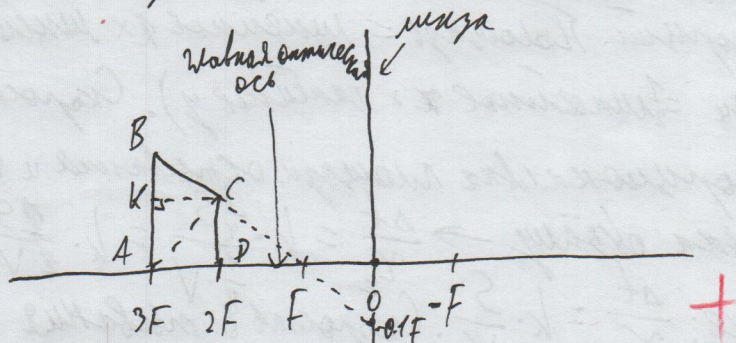 линза
Главная оптическая
ось
B
K
C
A
D
3F
2F
F
O
-F
-0.1F